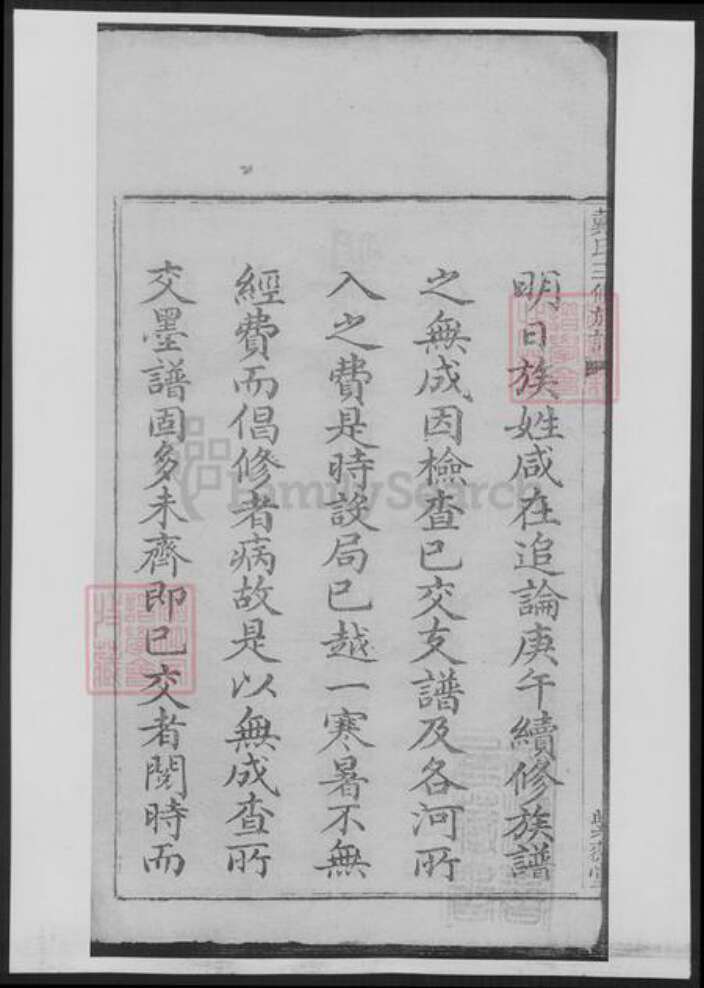 氏三修族譜
明日族姓咸在追論庚午續修族譜
之無成因檢查已交支譜及各河所
入之費是時設局已越一寒暑不無
經費而倡修者病故是以無成查所
交墨譜固多未齊即已交者閱時而
FamilySearch